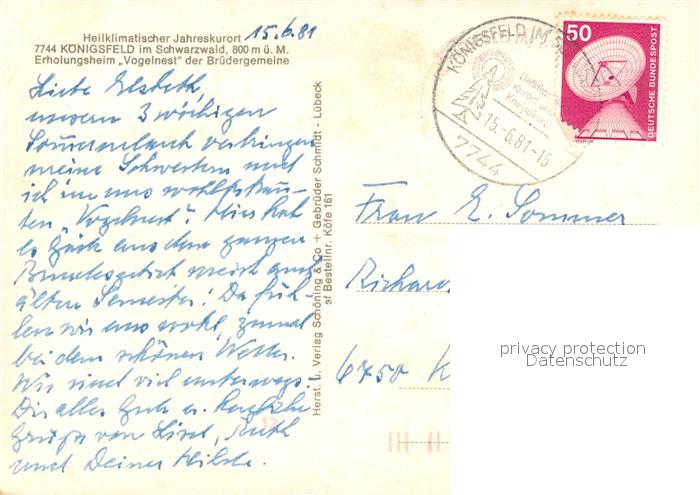 Heilklimatischer Jahreskurort 15.6.81
7744 KÖNIGSFELD im Schwarzwald, 800 m ü. M.
Erholungsheim „Vogelnest" der Brüdergemeine
Liebe Elsbeth,
unseren 3 wöchigen
Sommerurlaub verbringen
meine Schwestern und
ich im uns wohlbekann-
ten „Vogelnest". Hier hat
es Gäste aus dem ganzen
Bundesgebiet meist auch
älteren Semester! Da füh-
len wir uns wohl, zumal
bei dem schönen Wetter.
Wir sind viel unterwegs.
Dir alles Gute u. herzliche
Grüße von Lisel, Ruth
und Deiner Hilde.
Herst. u. Verlag Schöning & Co + Gebrüder Schmidt - Lübeck
sf Bestellnr. Köfe 161
KÖNIGSFELD IM
15.-6.81-15
7744
50
DEUTSCHE BUNDESPOST
Frau E. Sommer
Richard
6750 K
privacy protection
Datenschutz